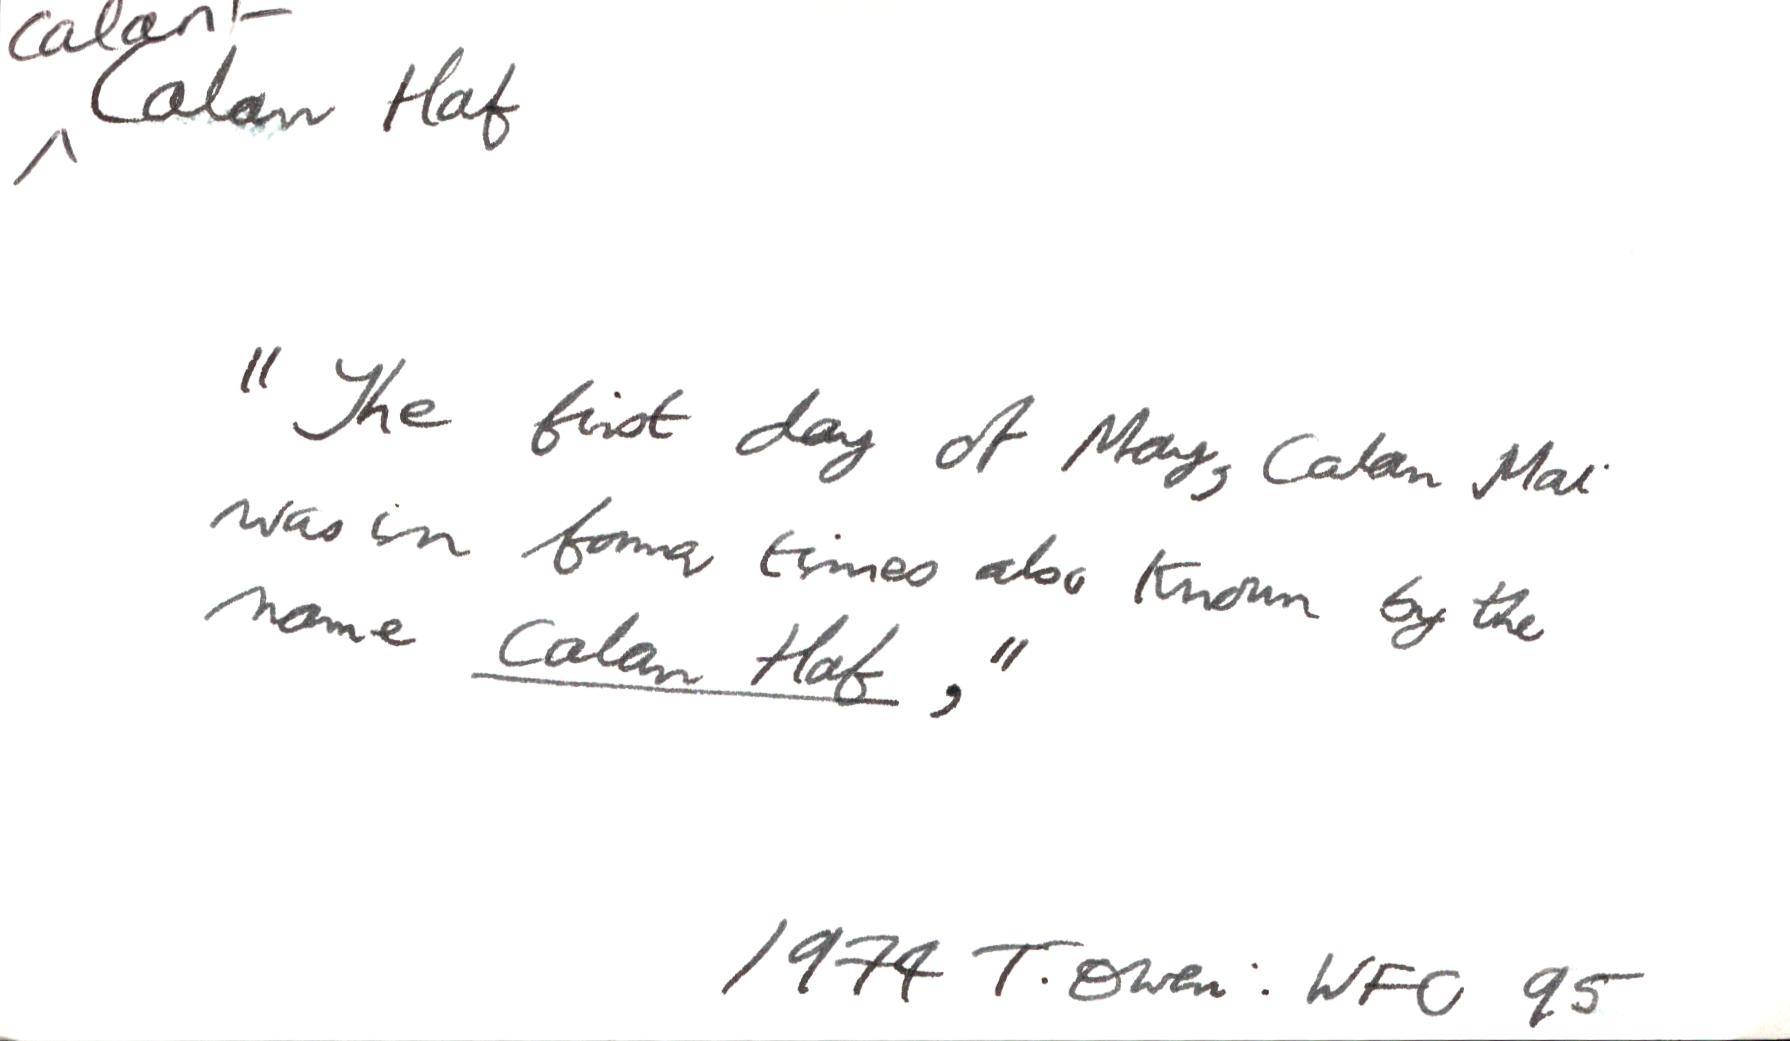 calan
Calan Haf
^
" The first day of May, Calan Mai
was in former times also known by the
name Calan Haf ,"
1974 T. Owen: WFC 95